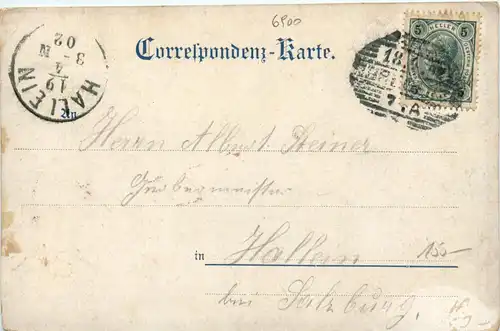 6900
Correspondenz-Karte.
HALLEIN
19
4
3-N
02
5 HELLER 5
18.
7.A
An
Herrn Albert Steiner
in Hallein
bei Salzburg.
150-